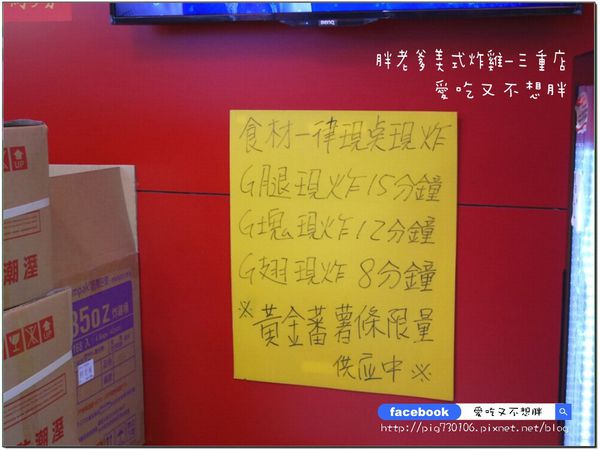 胖老爹美式炸雞-三重店
愛吃又不想胖
食材一律現桌現炸
G腿現炸15分鐘
G塊現炸12分鐘
G翅現炸 8分鐘
※黃金蕃薯條限量
供应中※
UP
潮溼
85OZ 炸雞桶
facebook 愛吃又不想胖
http://pig730106.pixnet.net/blog